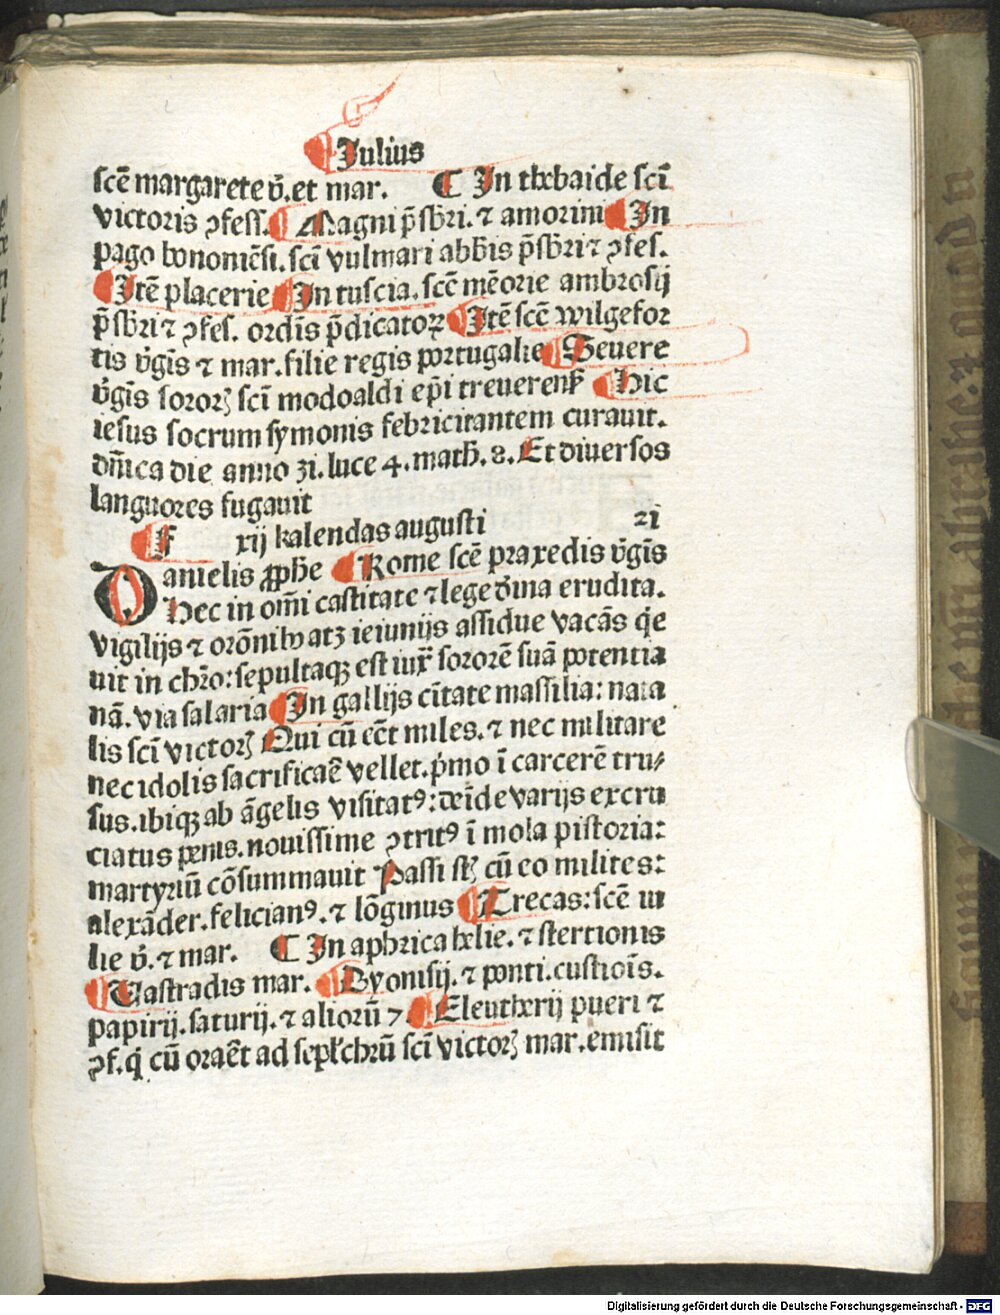 Julius
scē margarete v̄. et mar. ¶ In thebaide sci̅
victoris ꝯfess. Magni p̄sbri. ⁊ amorini In
pago bononiēsi. sci̅ vulmari abb̄is p̄sbri ⁊ ꝯfes.
Itē placerie In tuscia. scē mēorie ambrosij
p̄sbri ⁊ ꝯfes. ordis̄ p̄dicatoꝝ Itē scē wilgefor
tis v̄gis̄ ⁊ mar. filie regis portugalie Seuere
v̄gis̄ soroꝝ sci̅ modoaldi epi̅ treuerens̄ Hic
iesus socrum symonis febricitantem curauit.
dn̄ica die anno 31. luce 4. math̄. 8. Et diuersos
languores fugauit
F xij kalendas augusti 21
Danielis ꝓphe Rome scē praxedis v̄gis̄
Hec in om̄i castitate ⁊ lege diuina erudita.
vigilijs ⁊ orōnibꝰ atꝫ ieiunijs assidue vacās q̇e
uit in chr̄o: sepultaqꝫ est iux̄ sororē suā potentia
nā. via salaria In gallijs ciu̅tate massilia: nata
lis sci̅ victoꝝ Qui cū eēt miles. ⁊ nec militare
nec idolis sacrificaē vellet. p̍mo ī carcerē tru⸗
sus. ibiqꝫ ab āgelis visitatꝰ: deīde varijs excru
ciatus penis. nouissime ꝯtritꝰ ī mola pistoria:
martyriū cōsummauit Passi sūt cū eo milites:
alexāder. felicianꝰ. ⁊ lōginus Trecas: scē iu
lie v̄. ⁊ mar. ¶ In aphrica helie. ⁊ stertionis
Castradis mar. Dyonisij. ⁊ ponti. custiois̄.
papirij. saturij. ⁊ aliorū 7 Eleutherij pueri ⁊
ꝯf. q̍ cū oraēt ad sepl̄chrū sci̅ victoꝝ mar. emisit
Digitalisierung gefördert durch die Deutsche Forschungsgemeinschaft - DFG